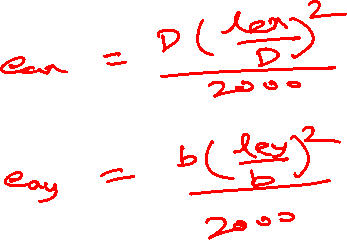 eax = D(lex/D)²/2000
eay = b(ley/b)²/2000